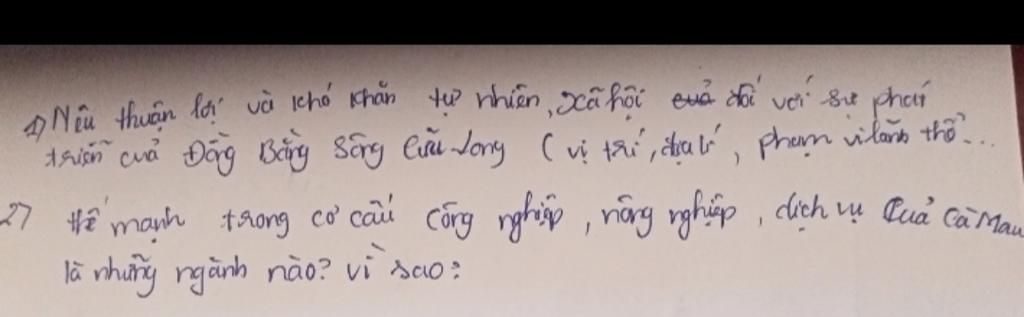 1) Nêu thuận lợi và khó khăn tự nhiên, xã hội của đối với sự phát
triển của Đồng Bằng Sông Cửu Long ( vị trí, địa lí, phạm vi lãnh thổ...
2) thế mạnh trong cơ cấu công nghiệp, nông nghiệp, dịch vụ của Cà Mau
là những ngành nào? vì sao?